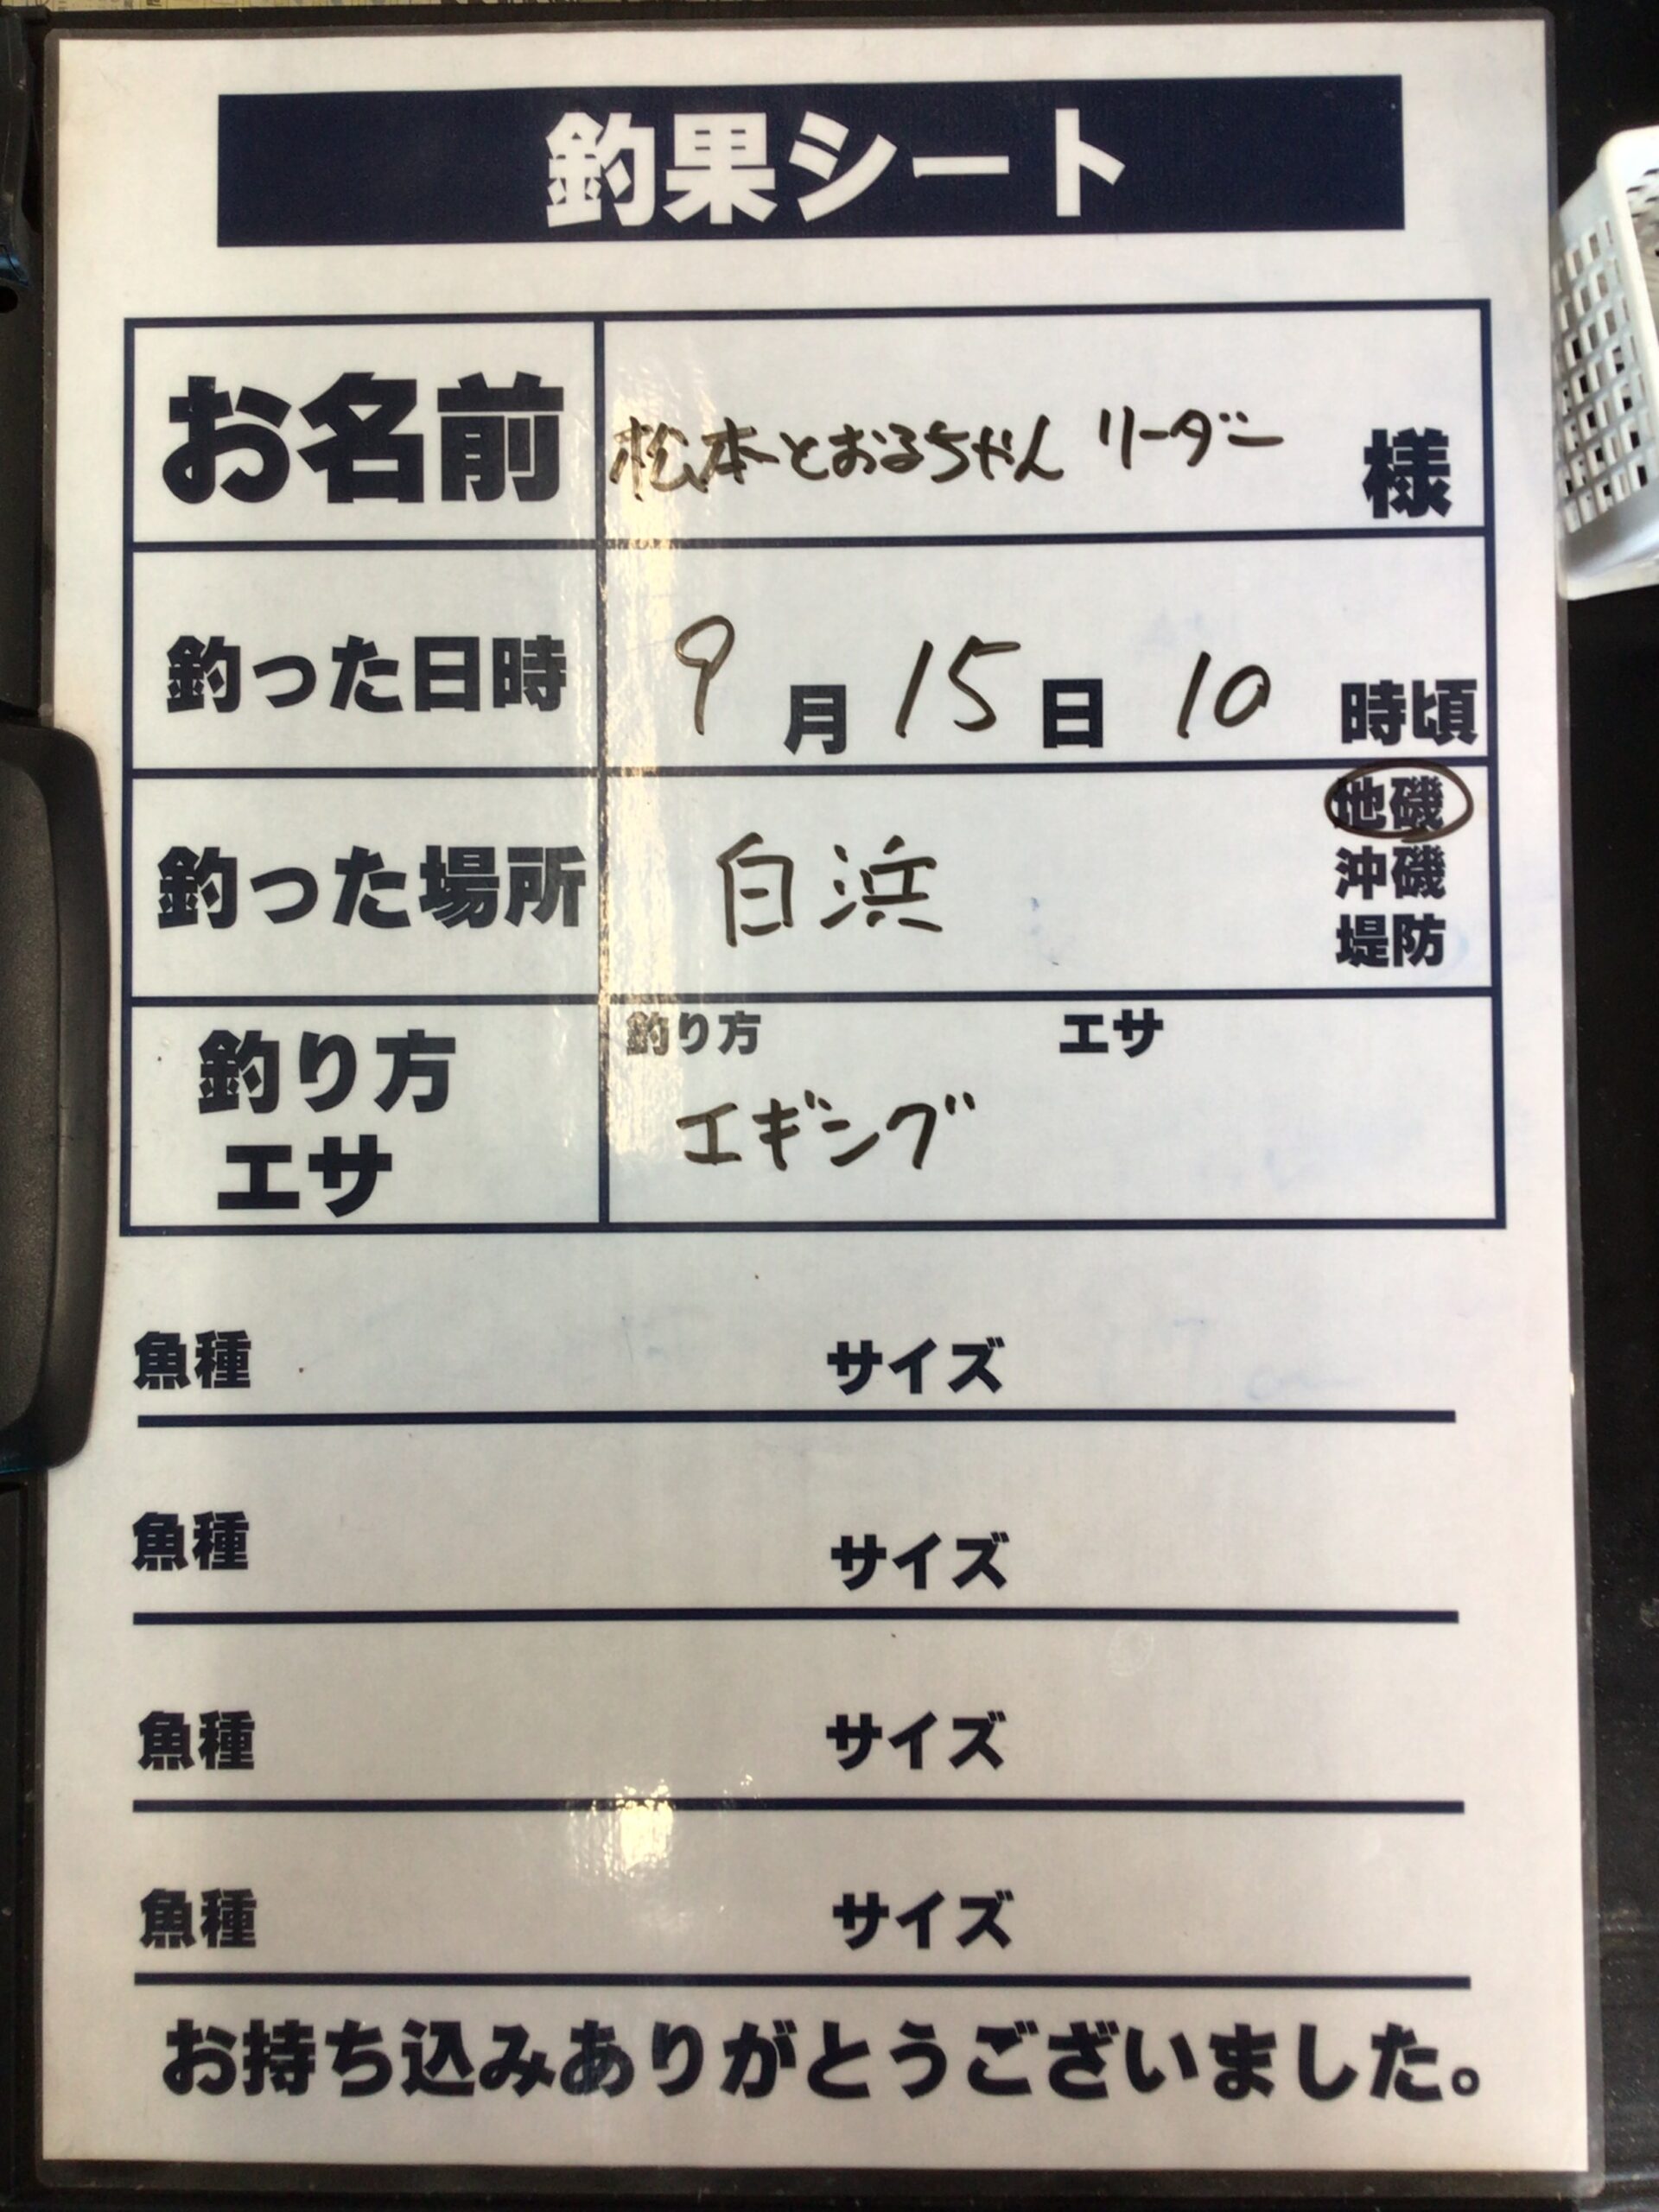 釣果シート
お名前 松本とおるちゃん リーダー 様
釣った日時 9月15日10時頃
釣った場所 白浜 地磯
沖磯
堤防
釣り方 エサ
釣り方 エギング
エサ
魚種 サイズ
魚種 サイズ
魚種 サイズ
魚種 サイズ
お持ち込みありがとうございました。